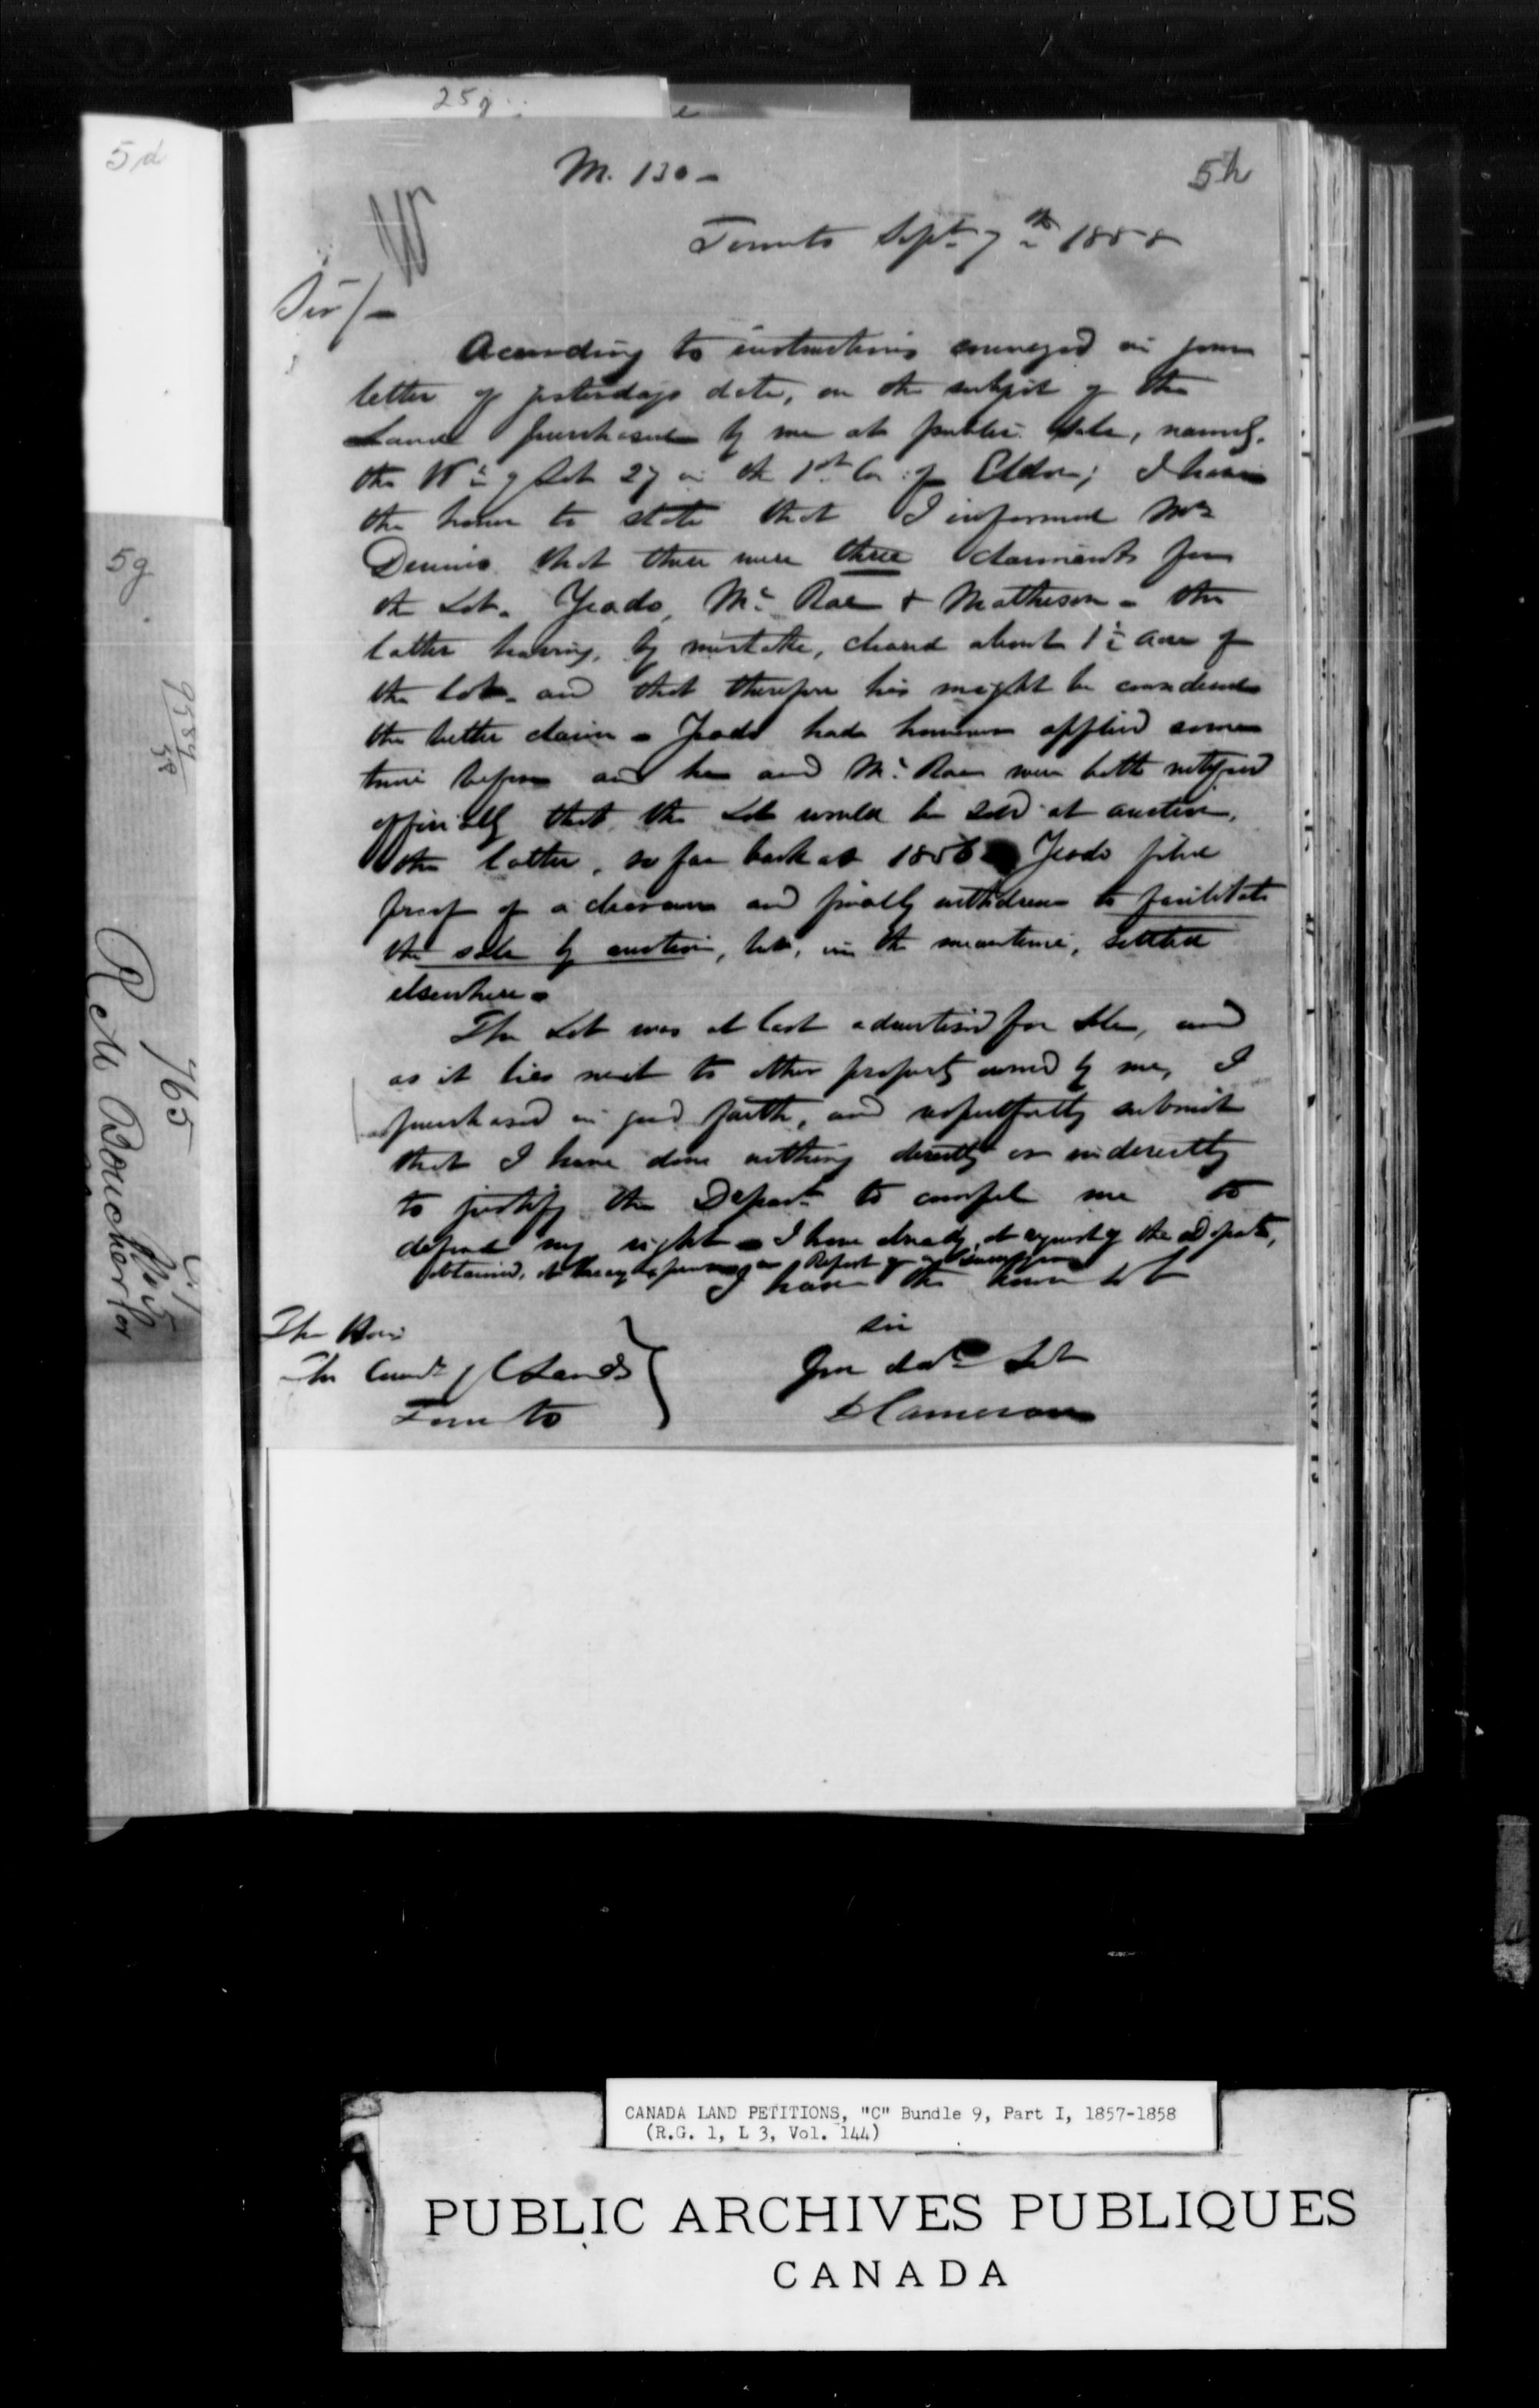 25g
5d
M. 130 -
5h
Toronto Sept 7th 1858
Sir/-
According to instructions conveyed in your
letter of yesterdays date, on the subject of the
Land purchased by me at public sale, namely,
the W ½ of Lot 27 in the 1st Con of Eldon; I have
the honor to state that I informed Mr
Dennis that there were three claimants for
the Lot. Yeado, Mc Rae & Matheson - the
latter having, by mistake, cleared about 1½ acre of
the lot - and that therefore his might be considered
the better claim - Yeado had however applied some
time before and he and Mc Rae were both notified
officially that the Lot would be sold at auction,
the latter, so far back as 1856 Yeado filed
proof of a clearance and finally withdrew to facilitate
the sale by auction, but, in the meantime, settled
elsewhere -
The Lot was at last advertised for sale, and
as it lies next to other property owned by me, I
purchased in good faith, and respectfully submit
that I have done nothing directly or indirectly
to justify the Depart to compel me to
defend my right - I have already, at request of the Depart,
obtained, at heavy expense, a Report of
I have the honor to be
Sir
Your Obt Sert
Cameron
The Hon
The Comr of C Lands
Toronto
5g
9584
58
765
R M Boucher for
CANADA LAND PETITIONS, "C" Bundle 9, Part I, 1857-1858
(R.G. 1, L 3, Vol. 144)
PUBLIC ARCHIVES PUBLIQUES
CANADA